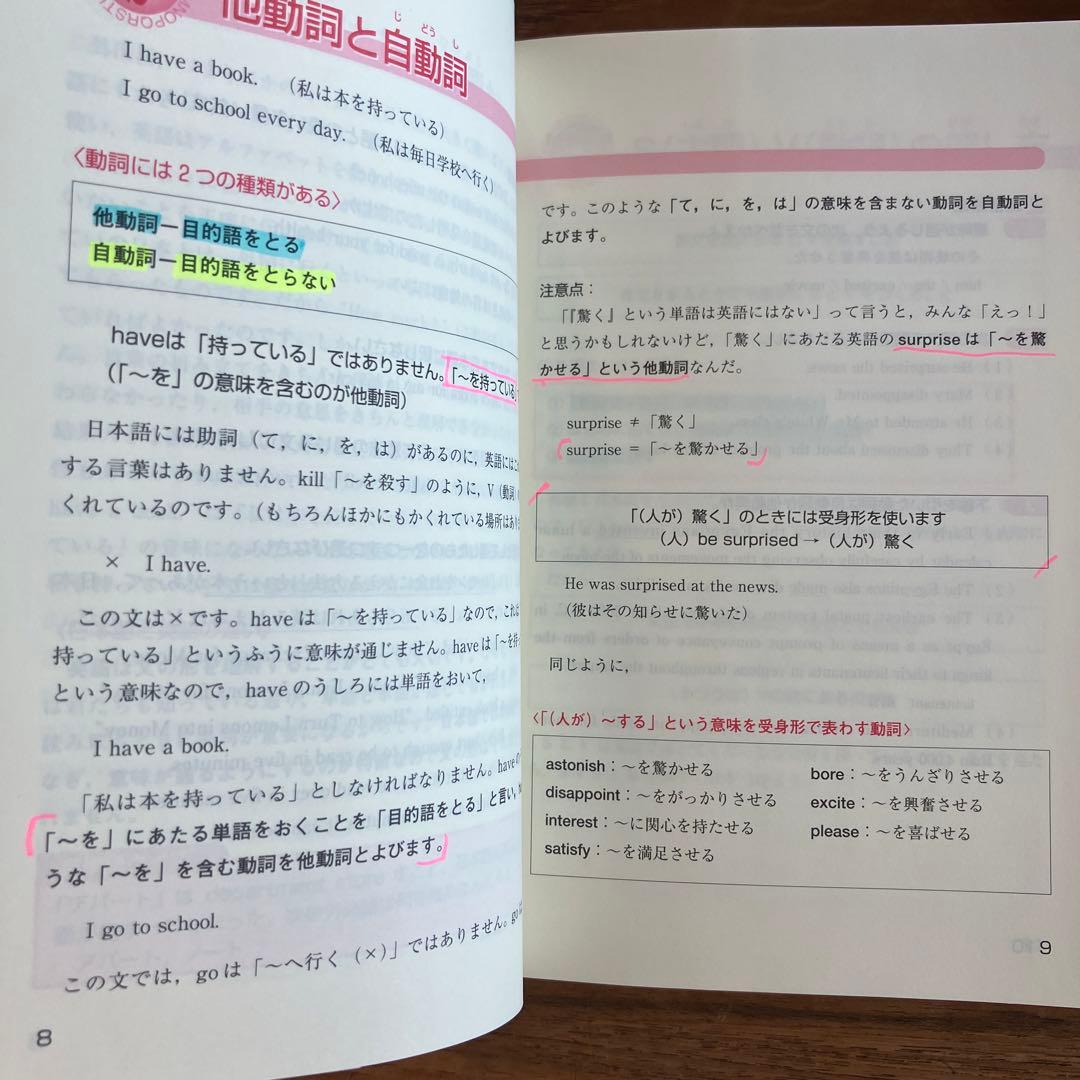 他動詞と自動詞
じ どう し
I have a book. (私は本を持っている)
I go to school every day. (私は毎日学校へ行く)
〈動詞には2つの種類がある〉
他動詞－目的語をとる
自動詞－目的語をとらない
haveは「持っている」ではありません。「～を持っている」
(「～を」の意味を含むのが他動詞)
日本語には助詞（て，に，を，は）があるのに，英語には
する言葉はありません。kill「～を殺す」のように，V（動詞）
くれているのです。(もちろんほかにもかくれている場所は
× I have.
この文は×です。haveは「～を持っている」なので，これは
持っている」というふうに意味が通じません。haveは「～を持っ
という意味なので，haveのうしろには単語をおいて，
I have a book.
「私は本を持っている」としなければなりません。haveの
「～を」にあたる単語をおくことを「目的語をとる」と言い，
うな「～を」を含む動詞を他動詞とよびます。
I go to school.
この文では，goは「～へ行く（×）」ではありません。go
8
です。このような「て，に，を，は」の意味を含まない動詞を自動詞と
よびます。
注意点：
「『驚く』という単語は英語にはない」って言うと，みんな「えっ！」
と思うかもしれないけど，「驚く」にあたる英語のsurpriseは「～を驚
かせる」という他動詞なんだ。
surprise ≠「驚く」
surprise =「～を驚かせる」
「(人が）驚く」のときには受身形を使います
(人）be surprised →（人が）驚く
He was surprised at the news.
(彼はその知らせに驚いた)
同じように，
〈「(人が）～する」という意味を受身形で表わす動詞〉
astonish：～を驚かせる
disappoint：～をがっかりさせる
interest：～に関心を持たせる
satisfy：～を満足させる
bore：～をうんざりさせる
excite：～を興奮させる
please：～を喜ばせる
9